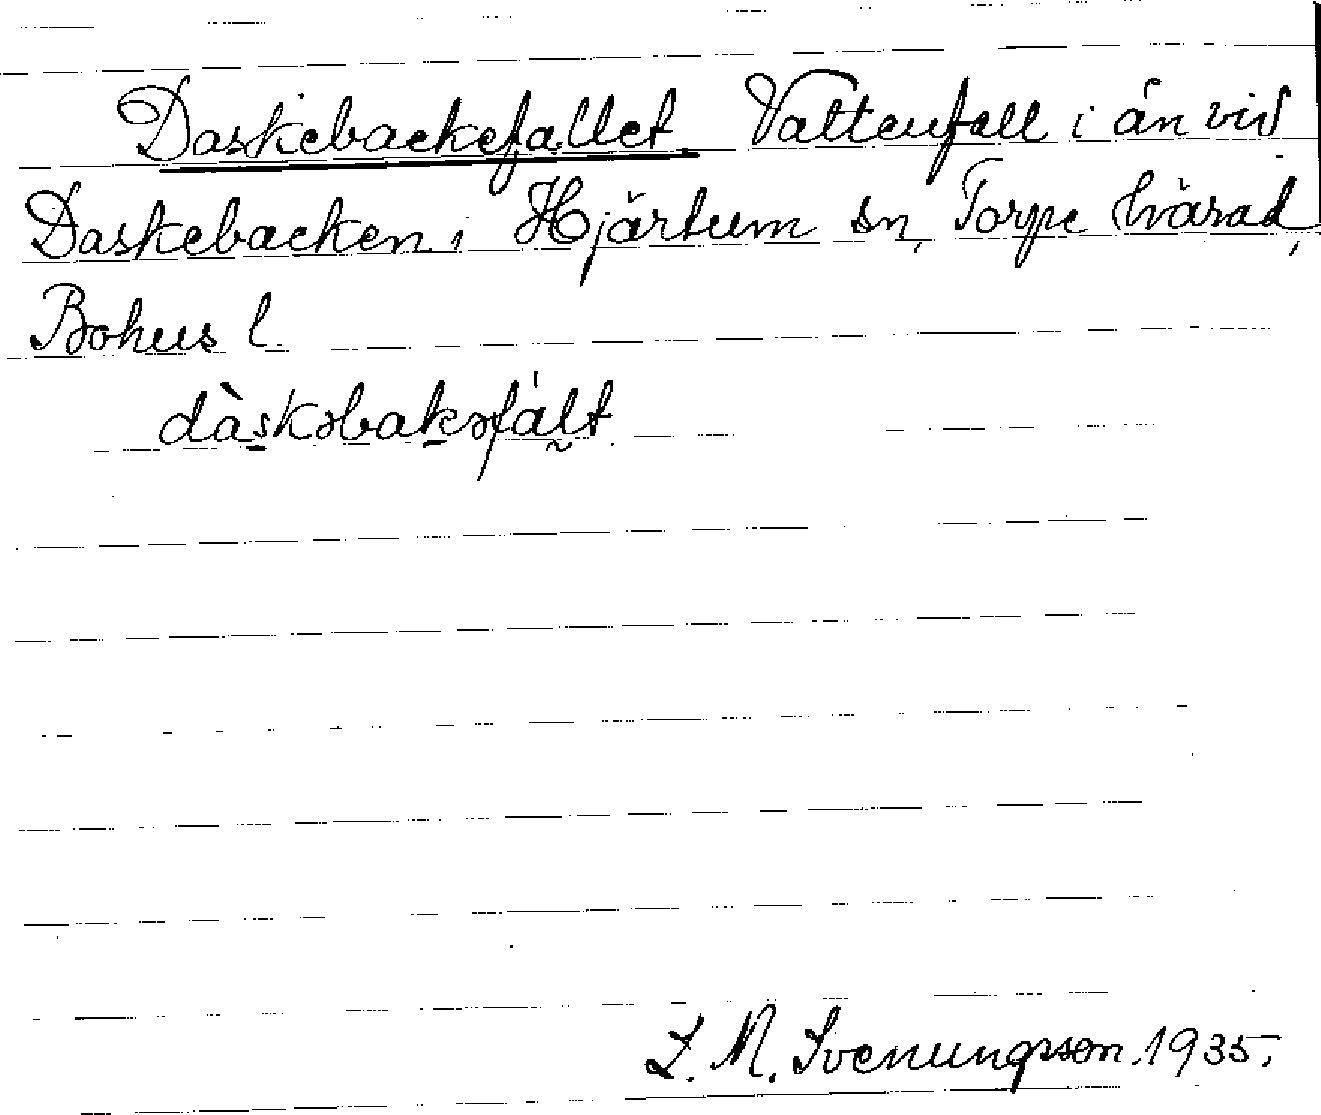 Daskebackefallet. Vattenfall i ån vid
Daskebacken i Hjärtum sn, Torpe härad,
Bohus l.
dàskəbakəfált
S. M. Svenungsson. 1935.